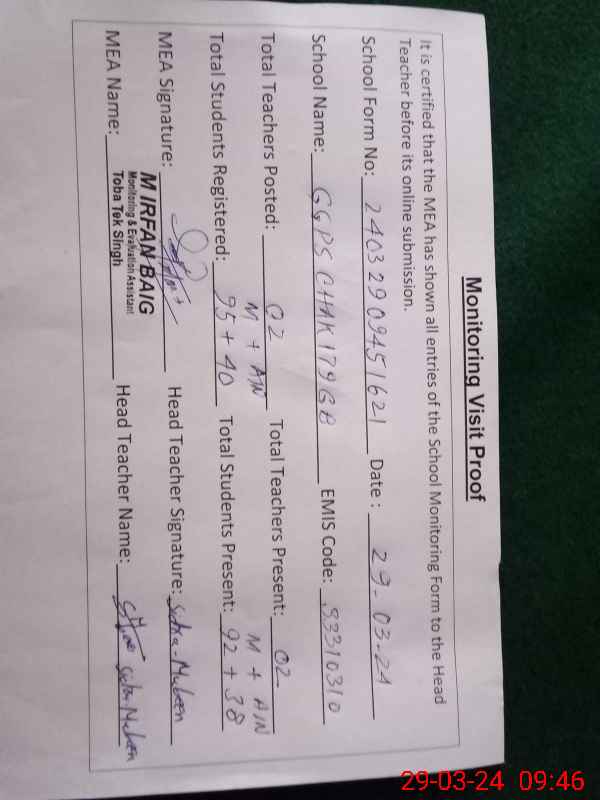 Monitoring Visit Proof
It is certified that the MEA has shown all entries of the School Monitoring Form to the Head
Teacher before its online submission.
School Form No: 24032909451621 Date : 29-03-24
School Name: GGPS CHAK 179 GB EMIS Code: 33310310
Total Teachers Posted: 02 Total Teachers Present: 02
M + AIN M + AIN
Total Students Registered: 95 + 40 Total Students Present: 92 + 38
MEA Signature: Head Teacher Signature:
M IRFAN BAIG
Monitoring & Evaluation Assistant
MEA Name: Toba Tek Singh Head Teacher Name:
29-03-24 09:46